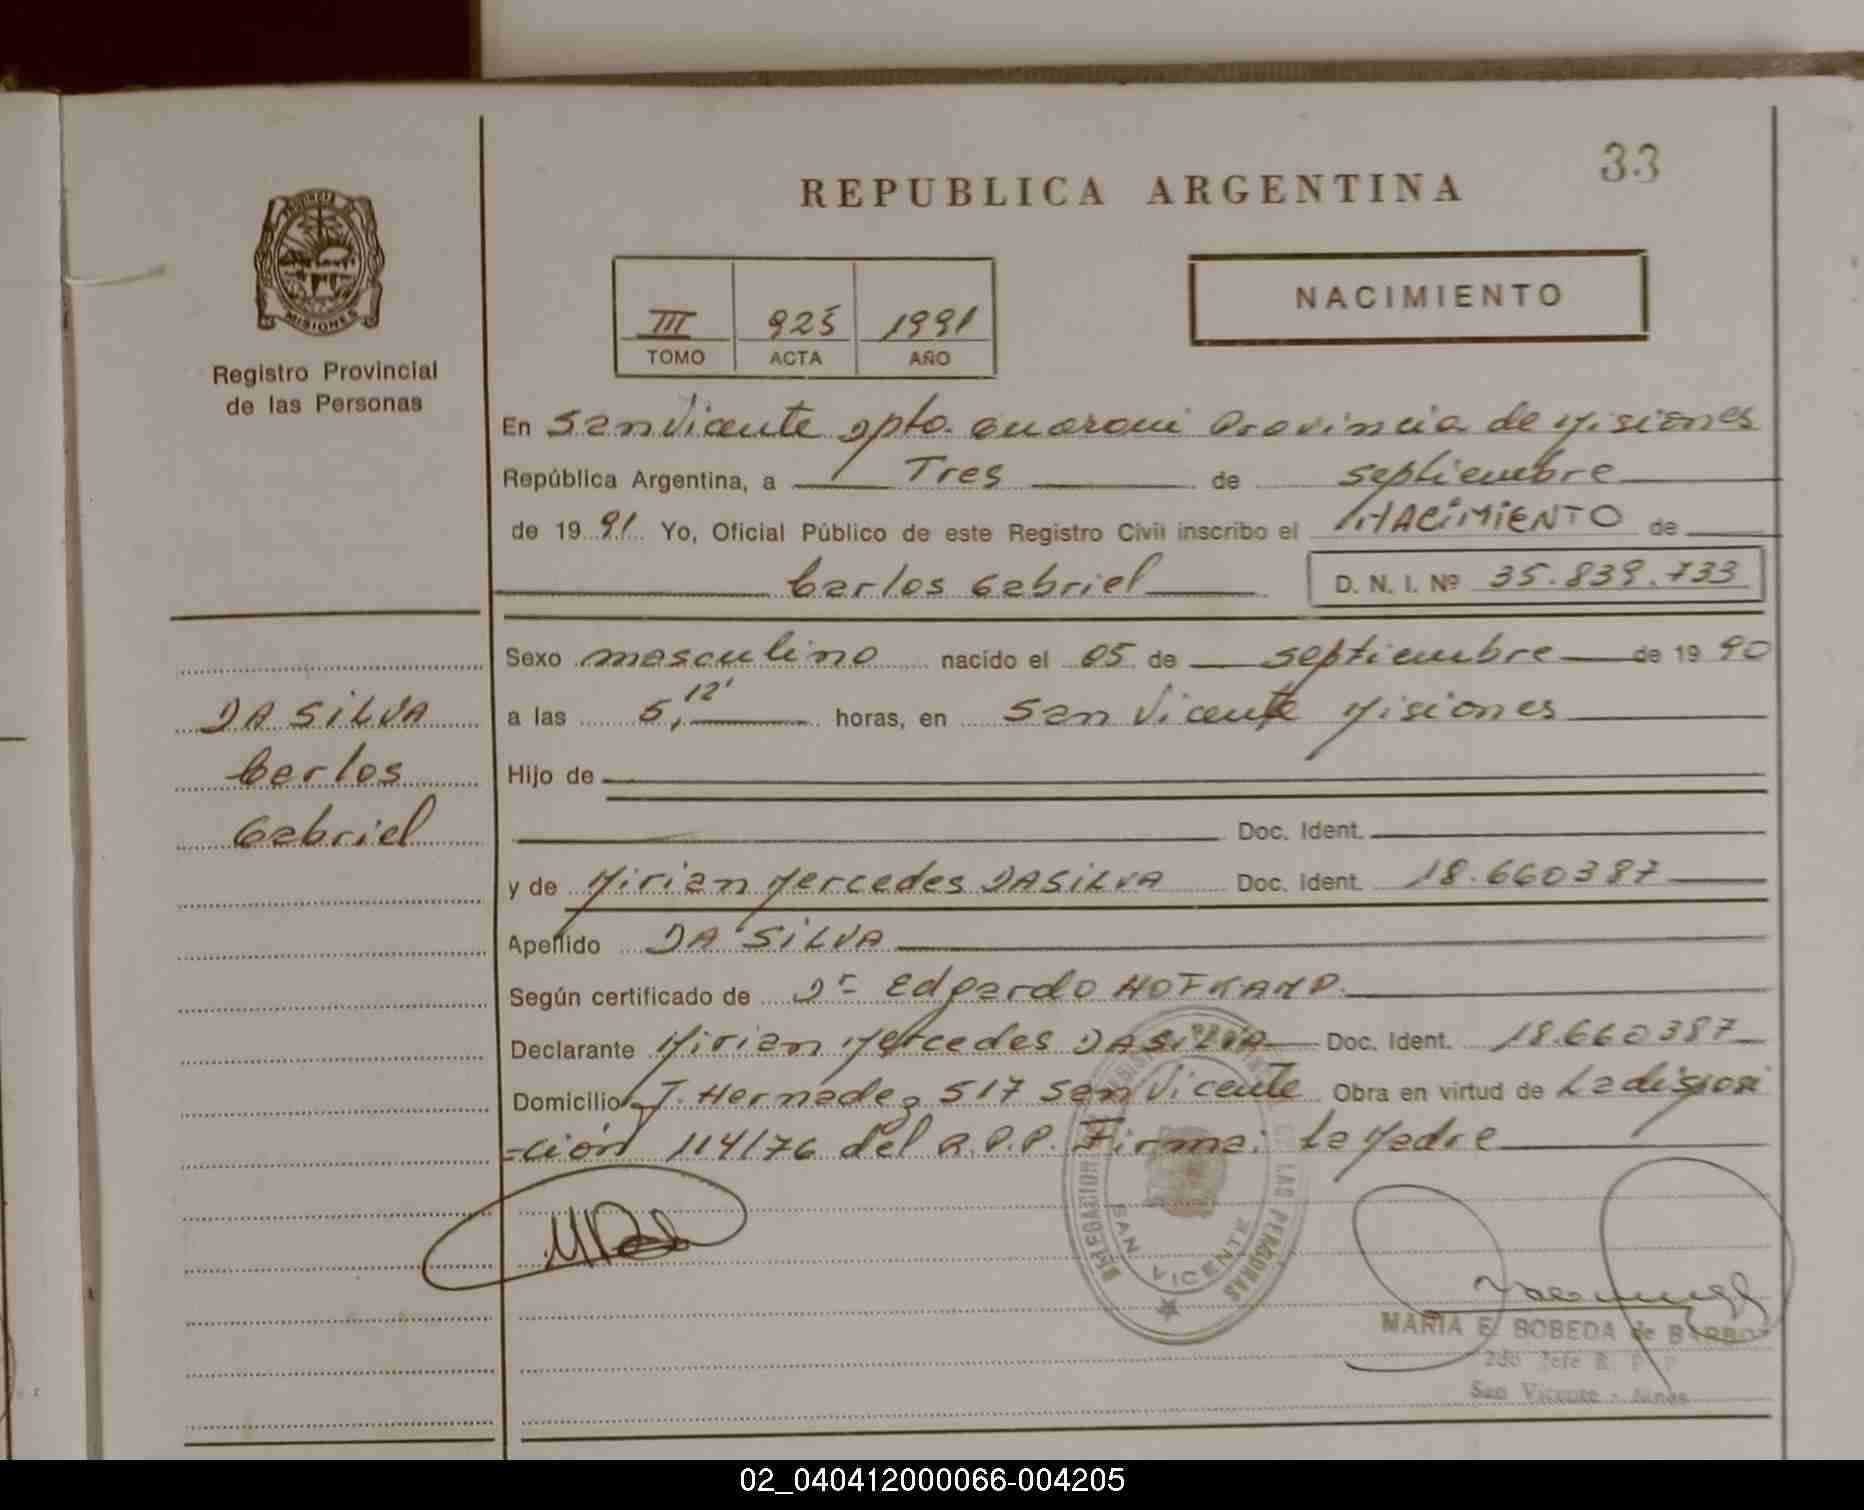 33
REPUBLICA ARGENTINA
PROVINCIA
MISIONES
Registro Provincial
de las Personas
III 925 1991
TOMO ACTA AÑO
NACIMIENTO
En San Vicente Dpto. Guarani Provincia de Misiones
República Argentina, a Tres de septiembre
de 1991. Yo, Oficial Público de este Registro Civil inscribo el NACIMIENTO de
Carlos Gabriel D. N. I. Nº 35.839.733
DA SILVA
Carlos
Gabriel
Sexo masculino nacido el 05 de septiembre de 1990
a las 5,12' horas, en San Vicente Misiones
Hijo de
Doc. Ident.
y de Mirian Mercedes DA SILVA Doc. Ident. 18.660387
Apellido DA SILVA
Según certificado de Dr Edgardo
Declarante Mirian Mercedes DA SILVA Doc. Ident. 18.660387
Domicilio J. Hernadez 517 San Vicente Obra en virtud de La disposi
=ción 114/76 del R.P.P. Firma: La Madre
DELEGACION DE LAS PERSONAS
SAN VICENTE
MARIA E. BOBEDA de
2do Jefe R. P. P.
San Vicente -
02_040412000066-004205